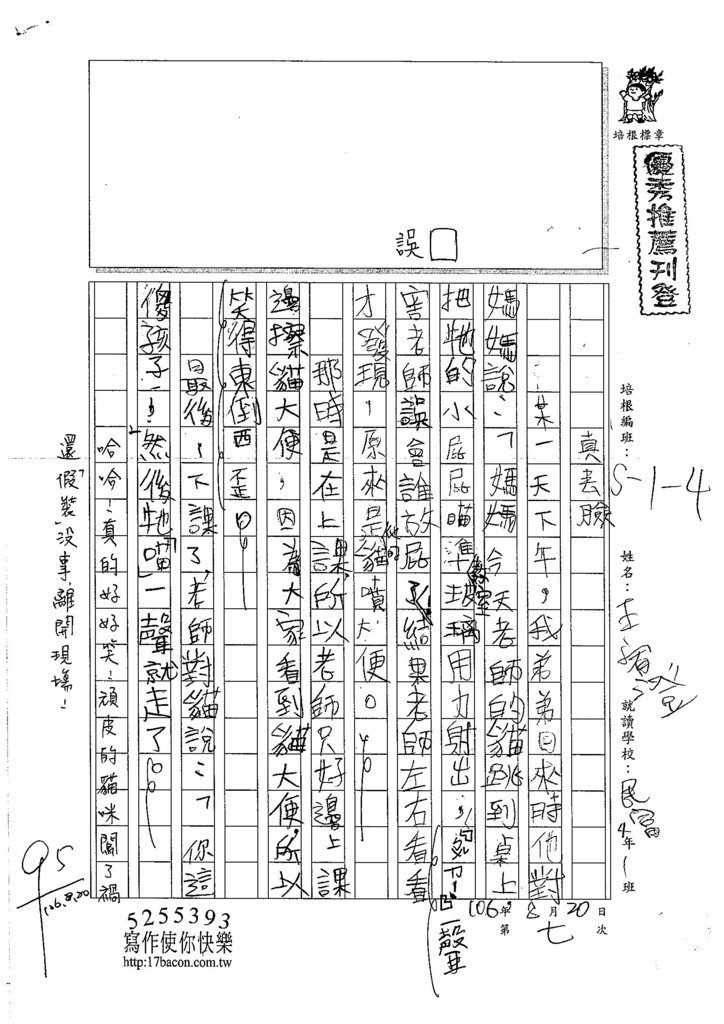 培根標章
優秀推薦刊登
誤
培根編班：S-1-4
姓名：王
就讀學校：民富
4年1班
106年8月20日
第七次
真丟臉
某一天下午，我弟弟回來時他對
媽媽說：「媽媽今天老師的貓跳到桌上
把牠的小屁屁瞄準教室玻璃用力射出
害老師誤會誰放屁結果老師左右看看
才發現，原來是他的貓噴大便。
那時是在上課所以老師只好邊上課
邊擦貓大便，因為大家看到貓大便所以
笑得東倒西歪。
最後，下課了，老師對貓說：「你這
傻孩子！」然後牠「喵」一聲就走了。
哈哈！真的好好笑！頑皮的貓咪闖了禍
還「假裝」沒事，離開現場！
95
106.8.20
5255393
寫作使你快樂
http:17bacon.com.tw